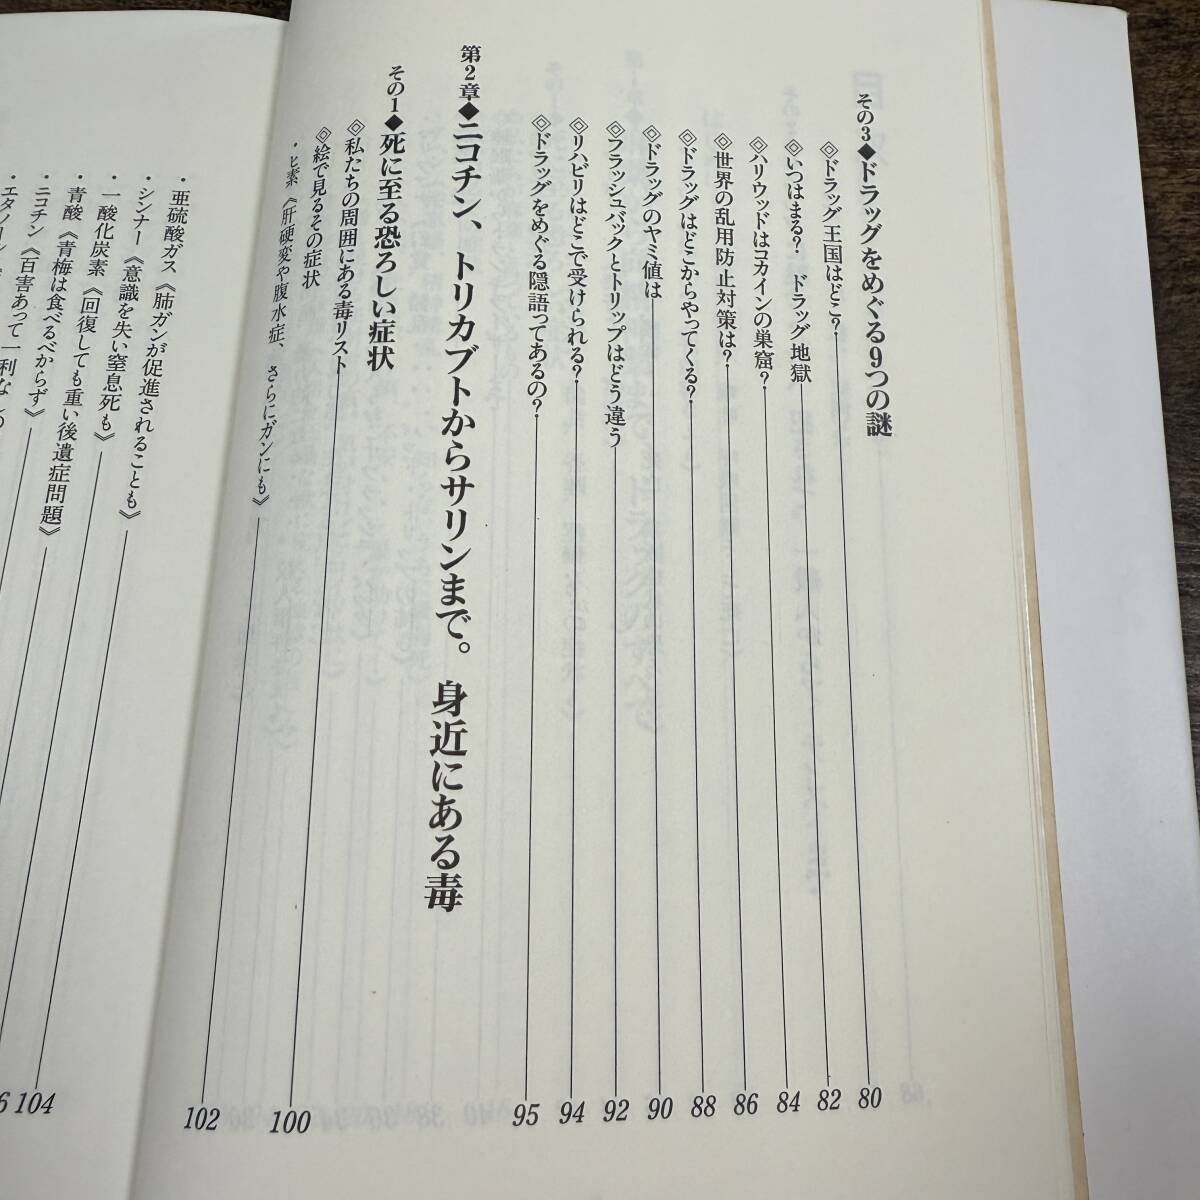 その3◆ドラッグをめぐる9つの謎
◎ドラッグ王国はどこ? 80
◎いつはまる? ドラッグ地獄 82
◎ハリウッドはコカインの巣窟? 84
◎世界の乱用防止対策は? 86
◎ドラッグはどこからやってくる? 88
◎ドラッグのヤミ値は 90
◎フラッシュバックとトリップはどう違う 92
◎リハビリはどこで受けられる? 94
◎ドラッグをめぐる隠語ってあるの? 95
第2章◆ニコチン、トリカブトからサリンまで。 身近にある毒
その1◆死に至る恐ろしい症状
◎私たちの周囲にある毒リスト 100
◎絵で見るその症状
・ヒ素《肝硬変や腹水症、さらにガンにも》 102
・亜硫酸ガス《肺ガンが促進されることも》
・シンナー《意識を失い窒息死も》
・一酸化炭素《回復しても重い後遺症問題》 104
・青酸《青梅は食べるべからず》
・ニコチン《百害あって一利な
・エタノール